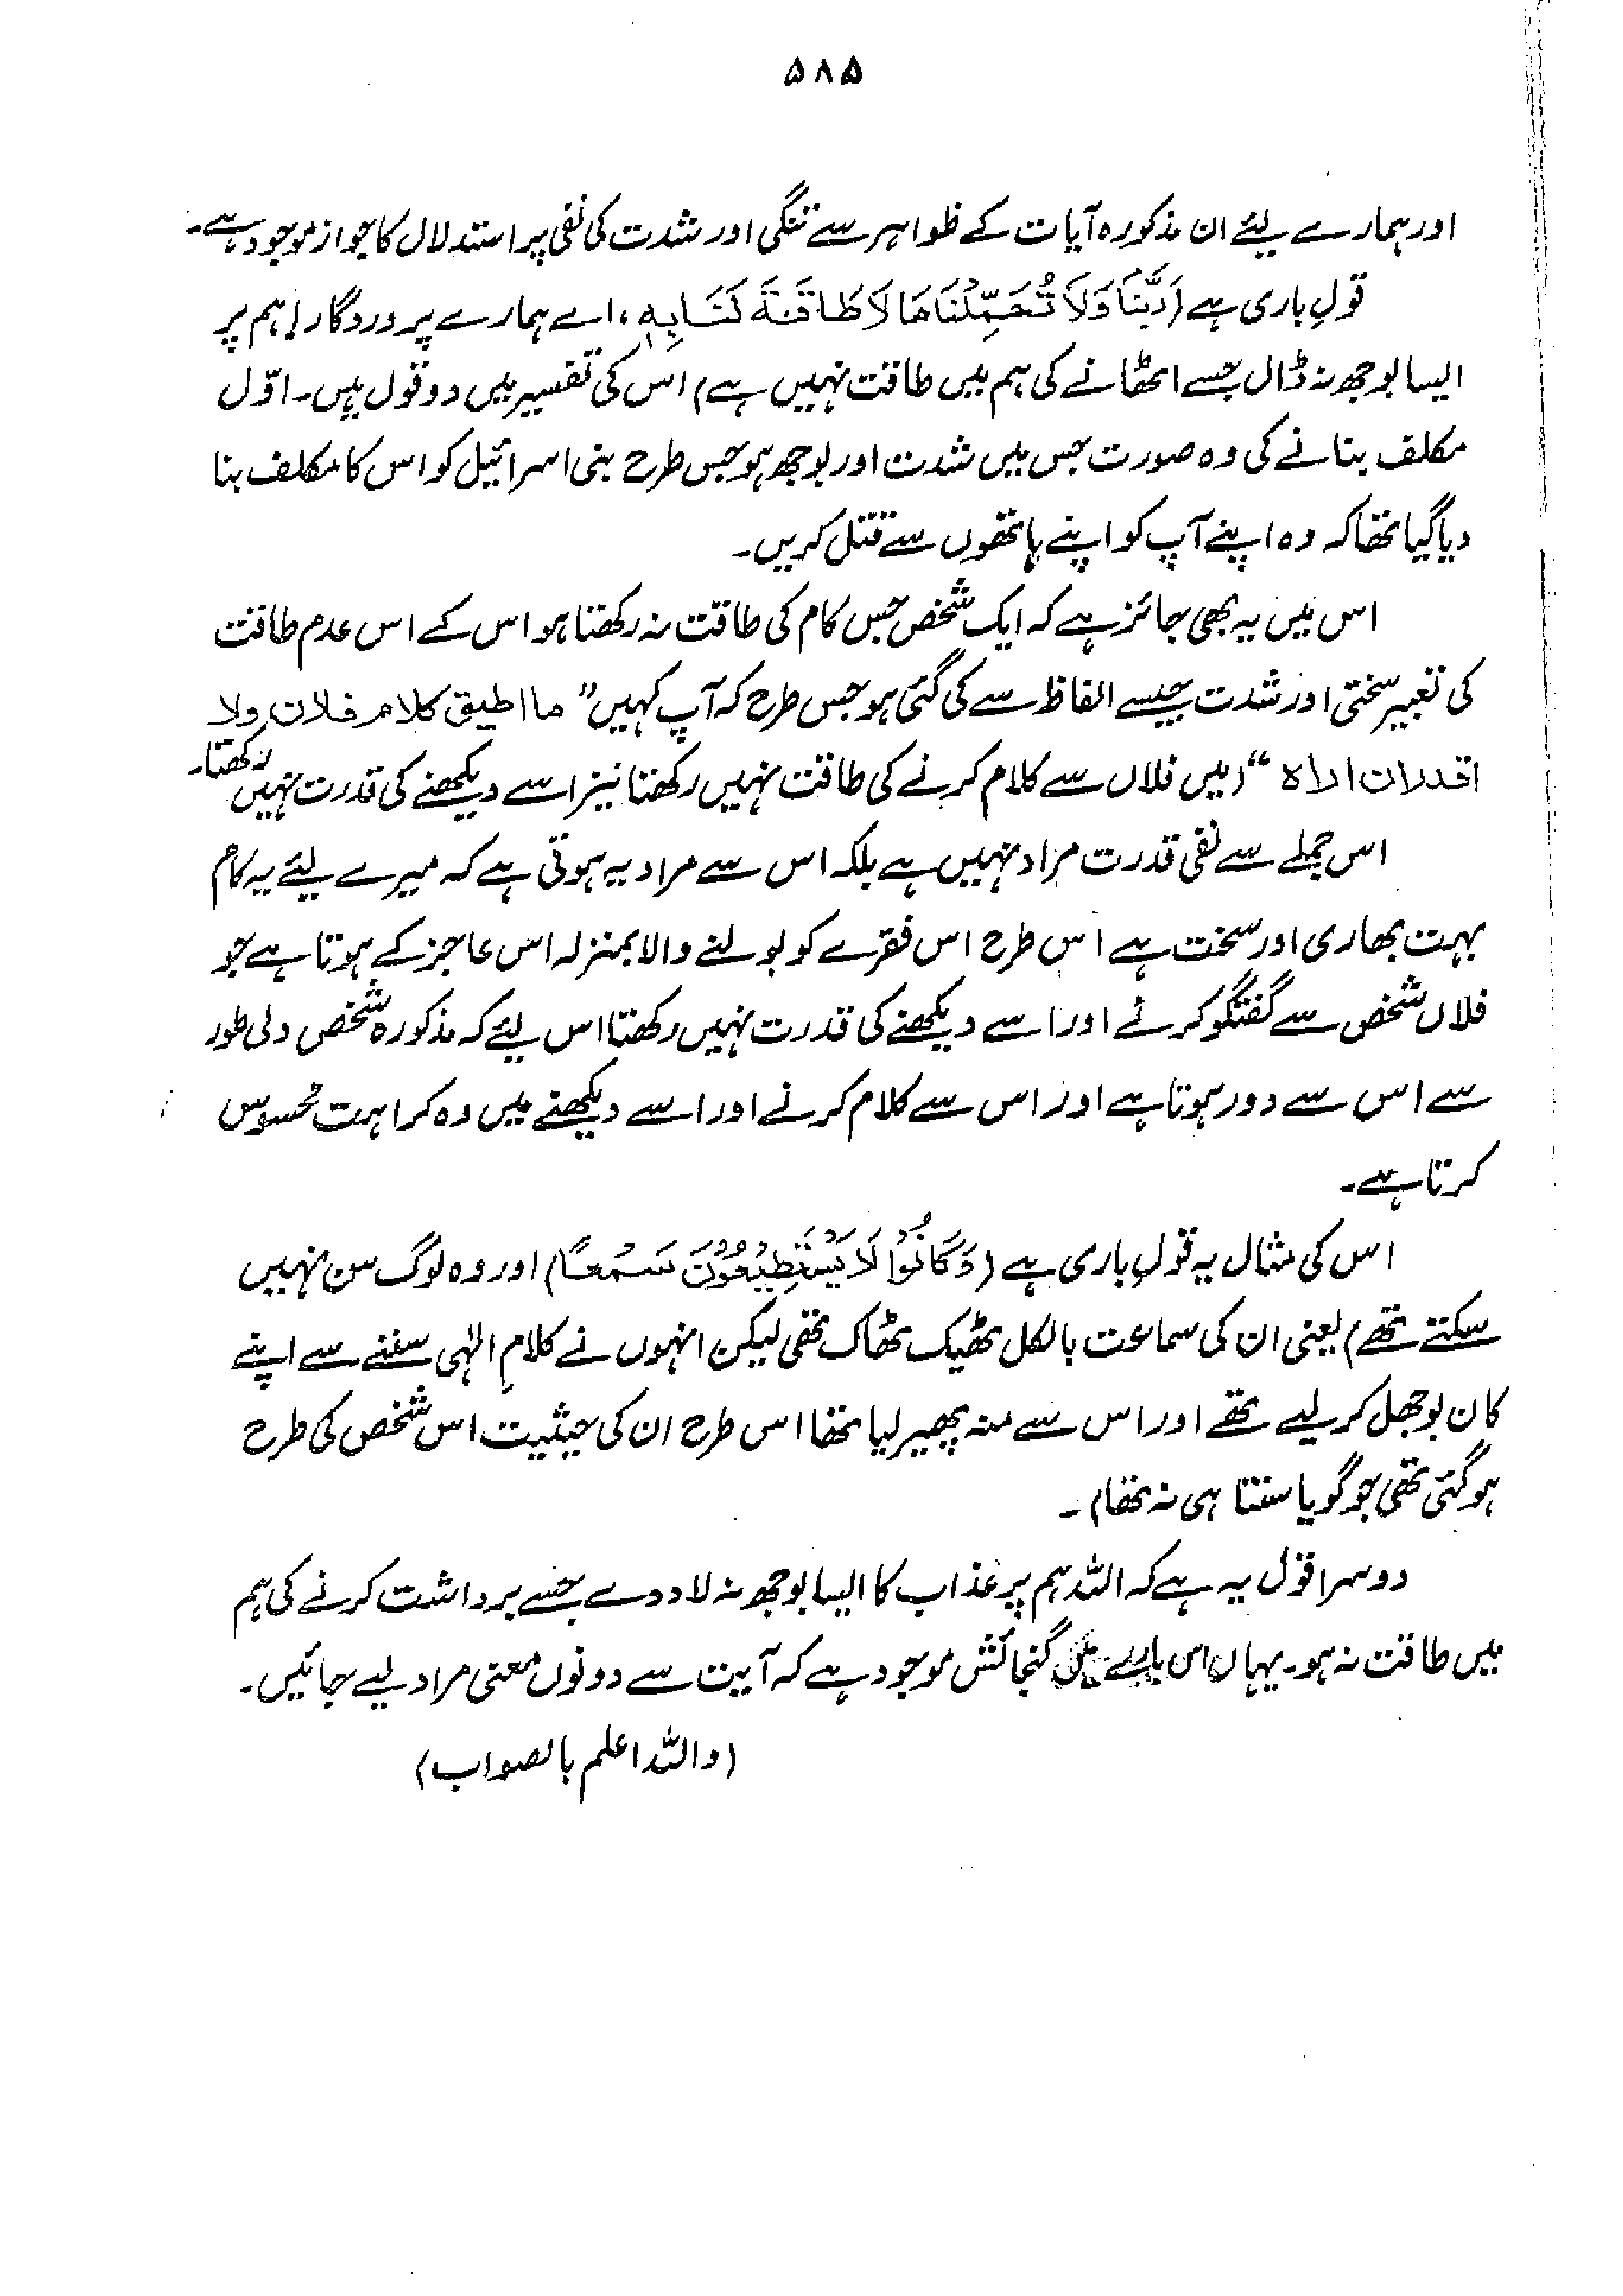 ۵۸۵
اور ہمارے لیئے ان مذکورہ آیات کے ظواہر سے تنگی اور شدت کی نفی پر استدلال کا جواز موجود ہے۔
قولِ باری ہے (رَبَّنَا وَلَا تُحَمِّلْنَا مَا لَا طَاقَةَ لَنَا بِهٖ ، اے ہمارے پروردگار! ہم پر
ایسا بوجھ نہ ڈال جسے اٹھانے کی ہم میں طاقت نہیں ہے) اس کی تفسیر میں دو قول ہیں۔ اوّل
مکلف بنانے کی وہ صورت جس میں شدت اور بوجھ ہو جس طرح بنی اسرائیل کو اس کا مکلف بنا
دیا گیا تھا کہ وہ اپنے آپ کو اپنے ہاتھوں سے قتل کریں۔
اس میں یہ بھی جائز ہے کہ ایک شخص جس کام کی طاقت نہ رکھتا ہو اس کے اس عدم طاقت
کی تعبیر سختی اور شدت جیسے الفاظ سے کی گئی ہو جس طرح کہ آپ کہیں" ما اطیق کلام فلان ولا
اقدر ان اراہ" (میں فلاں سے کلام کرنے کی طاقت نہیں رکھتا نیز اسے دیکھنے کی قدرت نہیں رکھتا۔
اس جملے سے نفی قدرت مراد نہیں ہے بلکہ اس سے مراد یہ ہوتی ہے کہ میرے لیئے یہ کام
بہت بھاری اور سخت ہے اس طرح اس فقرے کو بولنے والا بمنزلہ اس عاجز کے ہوتا ہے جو
فلاں شخص سے گفتگو کرنے اور اسے دیکھنے کی قدرت نہیں رکھتا اس لیئے کہ مذکورہ شخص دلی طور
سے اس سے دور ہوتا ہے اور اس سے کلام کرنے اور اسے دیکھنے میں وہ کراہت محسوس
کرتا ہے۔
اس کی مثال یہ قولِ باری ہے (وَكَانُوْا لَا يَسْتَطِيْعُوْنَ سَمْعًا) اور وہ لوگ سن نہیں
سکتے تھے) یعنی ان کی سماعت بالکل ٹھیک ٹھاک تھی لیکن انہوں نے کلامِ الٰہی سننے سے اپنے
کان بوجھل کر لیے تھے اور اس سے منہ پھیر لیا تھا اس طرح ان کی حیثیت اس شخص کی طرح
ہو گئی تھی جو گویا سنتا ہی نہ تھا)۔
دوسرا قول یہ ہے کہ اللہ ہم پر عذاب کا ایسا بوجھ نہ لاد دے جسے برداشت کرنے کی ہم
میں طاقت نہ ہو۔ یہاں اس بارے میں گنجائش موجود ہے کہ آیت سے دونوں معنی مراد لیے جائیں۔
(واللہ اعلم بالصواب)